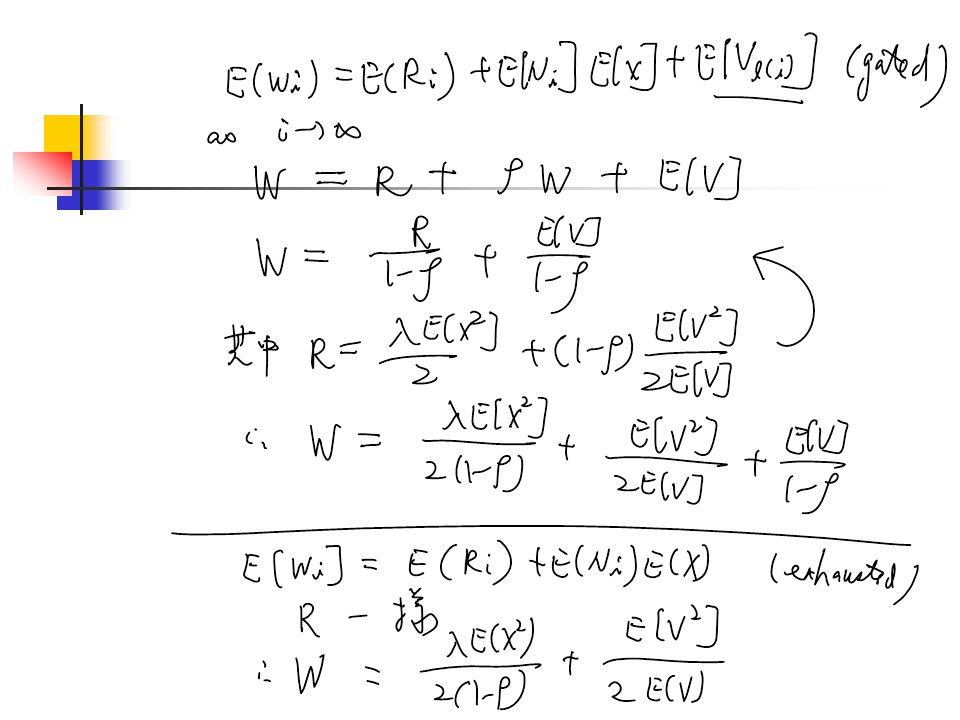 E(Wi) = E(Ri) + E[Ni] E[X] + E[Vl(i)] (gated)
as i→∞
W = R + ρW + E[V]
W = R/(1-ρ) + E[V]/(1-ρ)
其中 R = λE[X²]/2 + (1-ρ) E[V²]/2E[V]
∴ W = λE[X²]/2(1-ρ) + E[V²]/2E[V] + E[V]/(1-ρ)
E[Wi] = E(Ri) + E(Ni)E(X) (exhausted)
R 一樣
∴ W = λE(X²)/2(1-ρ) + E[V²]/2E(V)